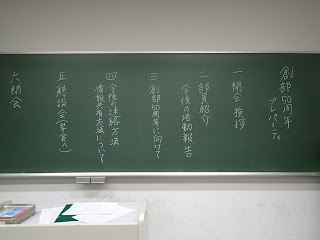 創部50周年
プレパーティ
一開会挨拶
二部員紹介
今後の活動報告
三創部50周年に向けて
四今後の連絡方法
情報共有方法について
五懇談会(学食へ)
六閉会